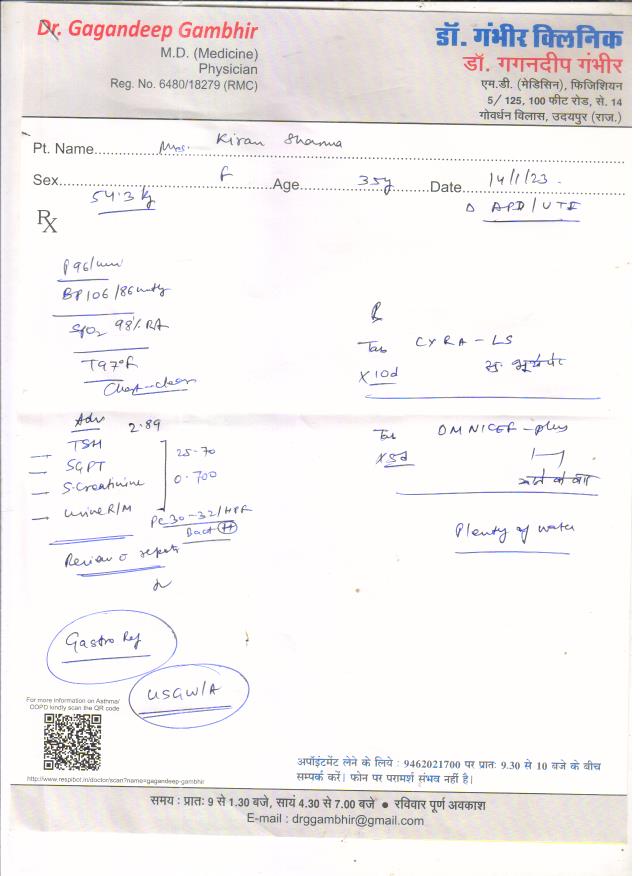 Dr. Gagandeep Gambhir
M.D. (Medicine)
Physician
Reg. No. 6480/18279 (RMC)
डॉ. गंभीर क्लिनिक
डॉ. गगनदीप गंभीर
एम.डी. (मेडिसिन), फिजिशियन
5/ 125, 100 फीट रोड, से. 14
गोवर्धन विलास, उदयपुर (राज.)
Pt. Name Mrs. Kiran Sharma
Sex F Age 35y Date 14/1/23
54.3 kg
Δ APD/UTI
Rx
P 96/min
BP 106/86 mmHg
SpO2 98% RA
T 97°F
Chest-clear
Adv
TSH 2.89
SGPT 25-70
S.Creatinine 0.700
Urine R/M
PC 30-32/HPF
Bact ++
Review c reports
Gastro Ref
USG W/A
Rx
Tab CYRA-LS
X10d
Tab OMNICEF-plus
X5d
Plenty of water
For more information on Asthma/
COPD kindly scan the QR code
http://www.respibot.in/doctor/scan?name=gagandeep-gambhir
अपॉइंटमेंट लेने के लिये : 9462021700 पर प्रातः 9.30 से 10 बजे के बीच
सम्पर्क करें। फोन पर परामर्श संभव नहीं है।
समय : प्रातः 9 से 1.30 बजे, सायं 4.30 से 7.00 बजे ● रविवार पूर्ण अवकाश
E-mail : drggambhir@gmail.com